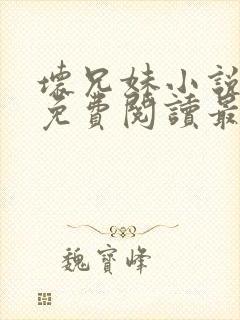 壞兄妹小說
免費閱讀最
魏寶峰